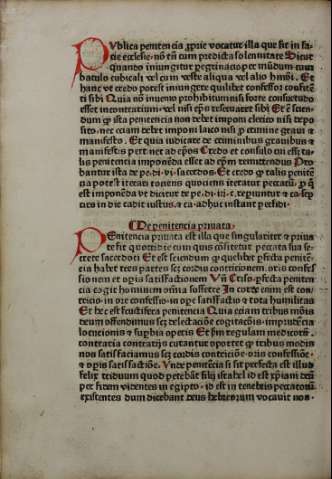 Publica penitencia ꝓprie vocatur illa que fit in fa-
cie ecclesie· nō tn̄ cum predicta solennitate Dicitur
quando iniungitur pegrinacio per mūdum cum
baculo cubicali vel cum veste aliqua vel alio hmōi· Et
hanc vt credo potest iniungere quilibet confessor confitē
ti sibi Quia nō inuenio prohibitum nisi forte consuetudo
esset in contrarium· vel nisi ep̄us reseruaret sibi Et ē scien-
dum ꝙ ista penitencia non debet imponi clerico nisi depo
sito· nec eciam debet imponi laico nisi ꝓ crimine graui &
manifesto· Et quia iudicare de criminibus grauibus &
manifestis ꝑtinet ad ep̄os Credo et consulo cum est ta-
lis penitencia imponēda esset ad ep̄m remittendus Pro-
bantur ista de pe· di· vi· sacerdos· Et credo ꝙ talis penitē
cia potest iterari tociens quociens iteratur peccatū· ꝓ q̄
est imponēda vt dicitur de pe· di· iii· c· repiuntur & ca· sep-
cies in die cadit iustus· & ca· adhuc instant perfidi·
De penitencia priuata·
Penitencia priuata est illa que singulariter & priua
te fit quotidie cum quis cōfitetur peccata sua se-
crete sacerdoti Et est sciendum ꝙ quelibet ꝑfecta penitē-
cia habet tres partes scꝫ cordis contricionem· oris confes
sionem et oꝑis satisfactionem Vn̄ Criso· ꝑfecta peniten-
cia cogit hominem om̄ia sufferre In corde enim est con-
tricio· in ore confessio· in oꝑe satisfactio & tota humilitas
Et hec est fructifera penitencia Quia eciam tribus modis
deum offendimus scꝫ delectacōne cogitacōis· imprudēcia
locucionis & superbia operis Et scdm regulam medicorū·
contraria contrarijs curantur oportet ꝙ tribus modis
nos satisfaciamus scꝫ cordis contricōne· oris confessiōe·
& oꝑis satisfactiōe· Vnde penitēcia si sit perfecta est illud
felix triduum quod petebāt filij israhel id est xp̄iani deū
per fidem videntes in egipto· id est in tenebris peccatorū
existentes dum dicebant deus hebreorum vocauit nos·